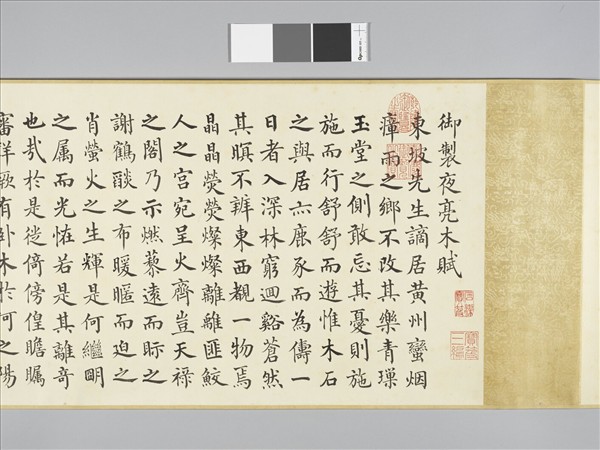 御製夜亮木賦
東坡先生謫居黄州蠻烟
瘴雨之鄉不改其樂青璅
玉堂之側敢忘其憂則施
施而行舒舒而遊惟木石
之與居亦鹿豕而為儔一
日者入深林窮迴谿蒼然
其暝不辨東西覩一物焉
晶晶熒熒燦燦離離匪鮫
人之宮宛呈火齊豈天祿
之閣乃示燃藜遠而眎之
謝鶴燄之布暖暱而迫之
肖螢火之生輝是何繼眀
之属而光恠若是其離奇
也㢤於是徙倚傍偟瞻矚
審詳厥有卧木於河之陽
石渠寶笈
寶笈三編